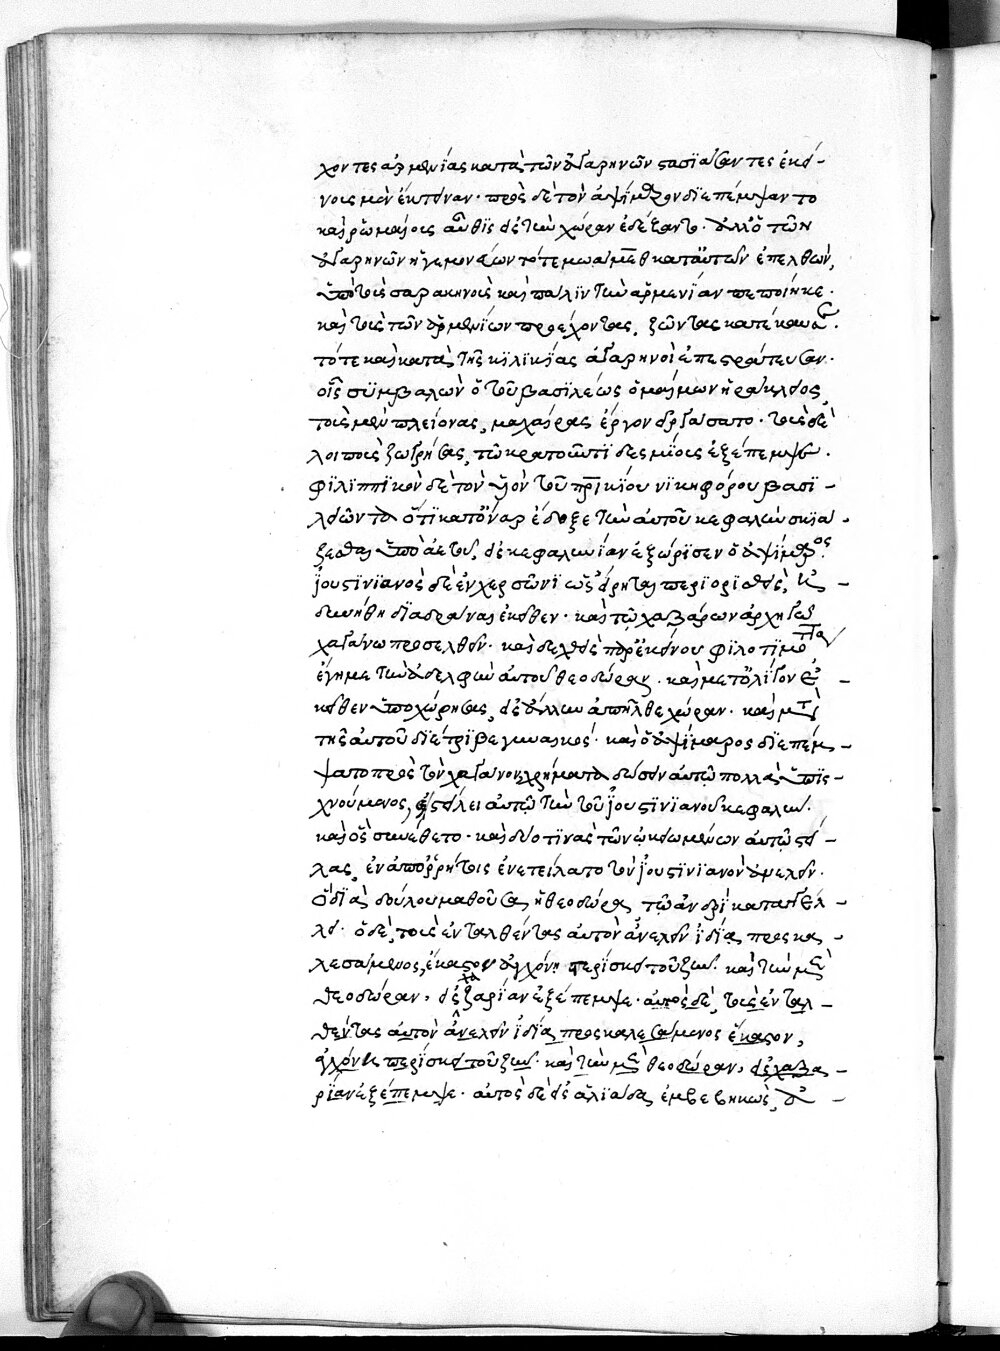 χοντες ἀρμενίας κατὰ τῶν ἀγαρηνῶν στασϊάσαντες ἐκεί-
νους μὲν ἔκτειναν· πρὸς δὲ τὸν ἀψίμαρον διεπέμψαντο
καὶ ῥωμαίοις αὖθϊς εἰς τὴν χώραν ἐδέξαντο· ἀλλ' ὁ τῶν
ἀγαρηνῶν ἡγεμονεύων τότε μωάμεθ κατ' αὐτῶν ἐπελθὼν,
ὑπὸ τοῖς σαρακηνοῖς καὶ πάλϊν τὴν ἀρμενίαν πεποίηκε·
καὶ τοὺς τῶν ἀρμενίων προέχοντας, ζῶντας κατέκαυσεν·
τότε καὶ κατὰ τῆς κϊλϊκίας ἀγαρηνοὶ ἐπεστράτευσαν·
οἷς συμβαλὼν ὁ τοῦ βασϊλέως ὁμαίμων ἡράκλειος,
τοὺς μὲν πλείονας, μαχαίρας ἔργον εἰργάσατο· τοὺς δὲ
λοιποὺς ζωγρήσας, τῶ κρατοῦντϊ δεσμίους ἐξέπεμψε·
φϊλϊππϊκὸν δὲ τὸν υἱὸν τοῦ πατρικίου νϊκηφόρου βασϊ-
λειῶντα ὅτϊ κατ' ὄναρ ἔδοξε τὴν αὐτοῦ κεφαλὴν σκϊά-
ζεσθαι ὑπὸ ἀετοῦ, εἰς κεφαλληνίαν ἐξώρϊσεν ὁ ἀψίμαρος·
ἰουστϊνϊανὸς δὲ ἐν χερσῶνϊ ὡς εἴρηται περιορισθεὶς,
δϊαδρᾶναι ἐκεῖθεν· καὶ τῶ χαζάρων ἀρχηγῶ
χαγάνω προσελθεῖν· καὶ δεχθεὶς παρ' ἐκείνου φϊλοτίμως
ἔγημε τὴν ἀδελφὴν αὐτοῦ θεοδώραν· καὶ μετ' ὀλίγον ἐ-
κεῖθεν ὑποχώρησας, εἰς ἄλλην ἀπῆλθε χώραν· καὶ μετὰ
τῆς αὐτοῦ δϊέτρϊβε γυναικός· καὶ ὁ ἀψίμαρος διεπέμ-
ψατο πρὸς τὸν χαγάνον, χρήματα δώσειν αὐτῶ πολλὰ ὑπϊσ-
χνούμενος, εἰ στείλει αὐτῶ τὴν τοῦ ἰουστϊνϊανοῦ κεφαλήν·
καὶ ὃς συνέθετο· καὶ δύο τινὰς τῶν ὠκειωμένων αὐτῶ στεί-
λας, ἐν ἀπορρήτοις ἐνετείλατο τὸν ἰουστϊνϊανὸν ἀνελεῖν·
ὃ δϊὰ δούλου μαθοῦσα ἡ θεοδώρα, τῶ ἀνδρὶ καταγγέλ-
λει· ὁ δὲ, τοὺς ἐνταλθέντας αὐτὸν ἀνελεῖν ἰδίᾳ προσκα-
λεσάμενος, ἕκαστον ἀγχόνη περϊσκεῖ τοῦ ζῆν· καὶ τὴν μὲν
θεοδώραν, εἰς χαζαρίαν ἐξέπεμψε· αὐτὸς δὲ, τοὺς ἐνταλ-
θέντας αὐτὸν ἀνελεῖν ἰδίᾳ προσκαλεσάμενος ἕκαστον,
ἀγχόνη περϊσκεῖ τοῦ ζῆν· καὶ τὴν μὲν θεοδώραν, εἰς χαζα-
ρίαν ἐξέπεμψε· αὐτὸς δὲ εἰς ἁλϊάδα ἐμβεβηκὼς,